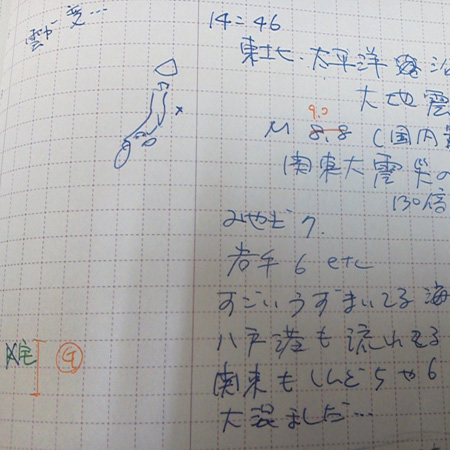 雲が変…
14:46
東北・太平洋沿
大地震
M 8.8 9.0 (国内
関東大震災の
130倍
みやぎ 7.
岩手 6 etc
すごいうずまいてる 海
八戸港も流れてる
関東もしんど5や6
大混乱だ…
宅
9